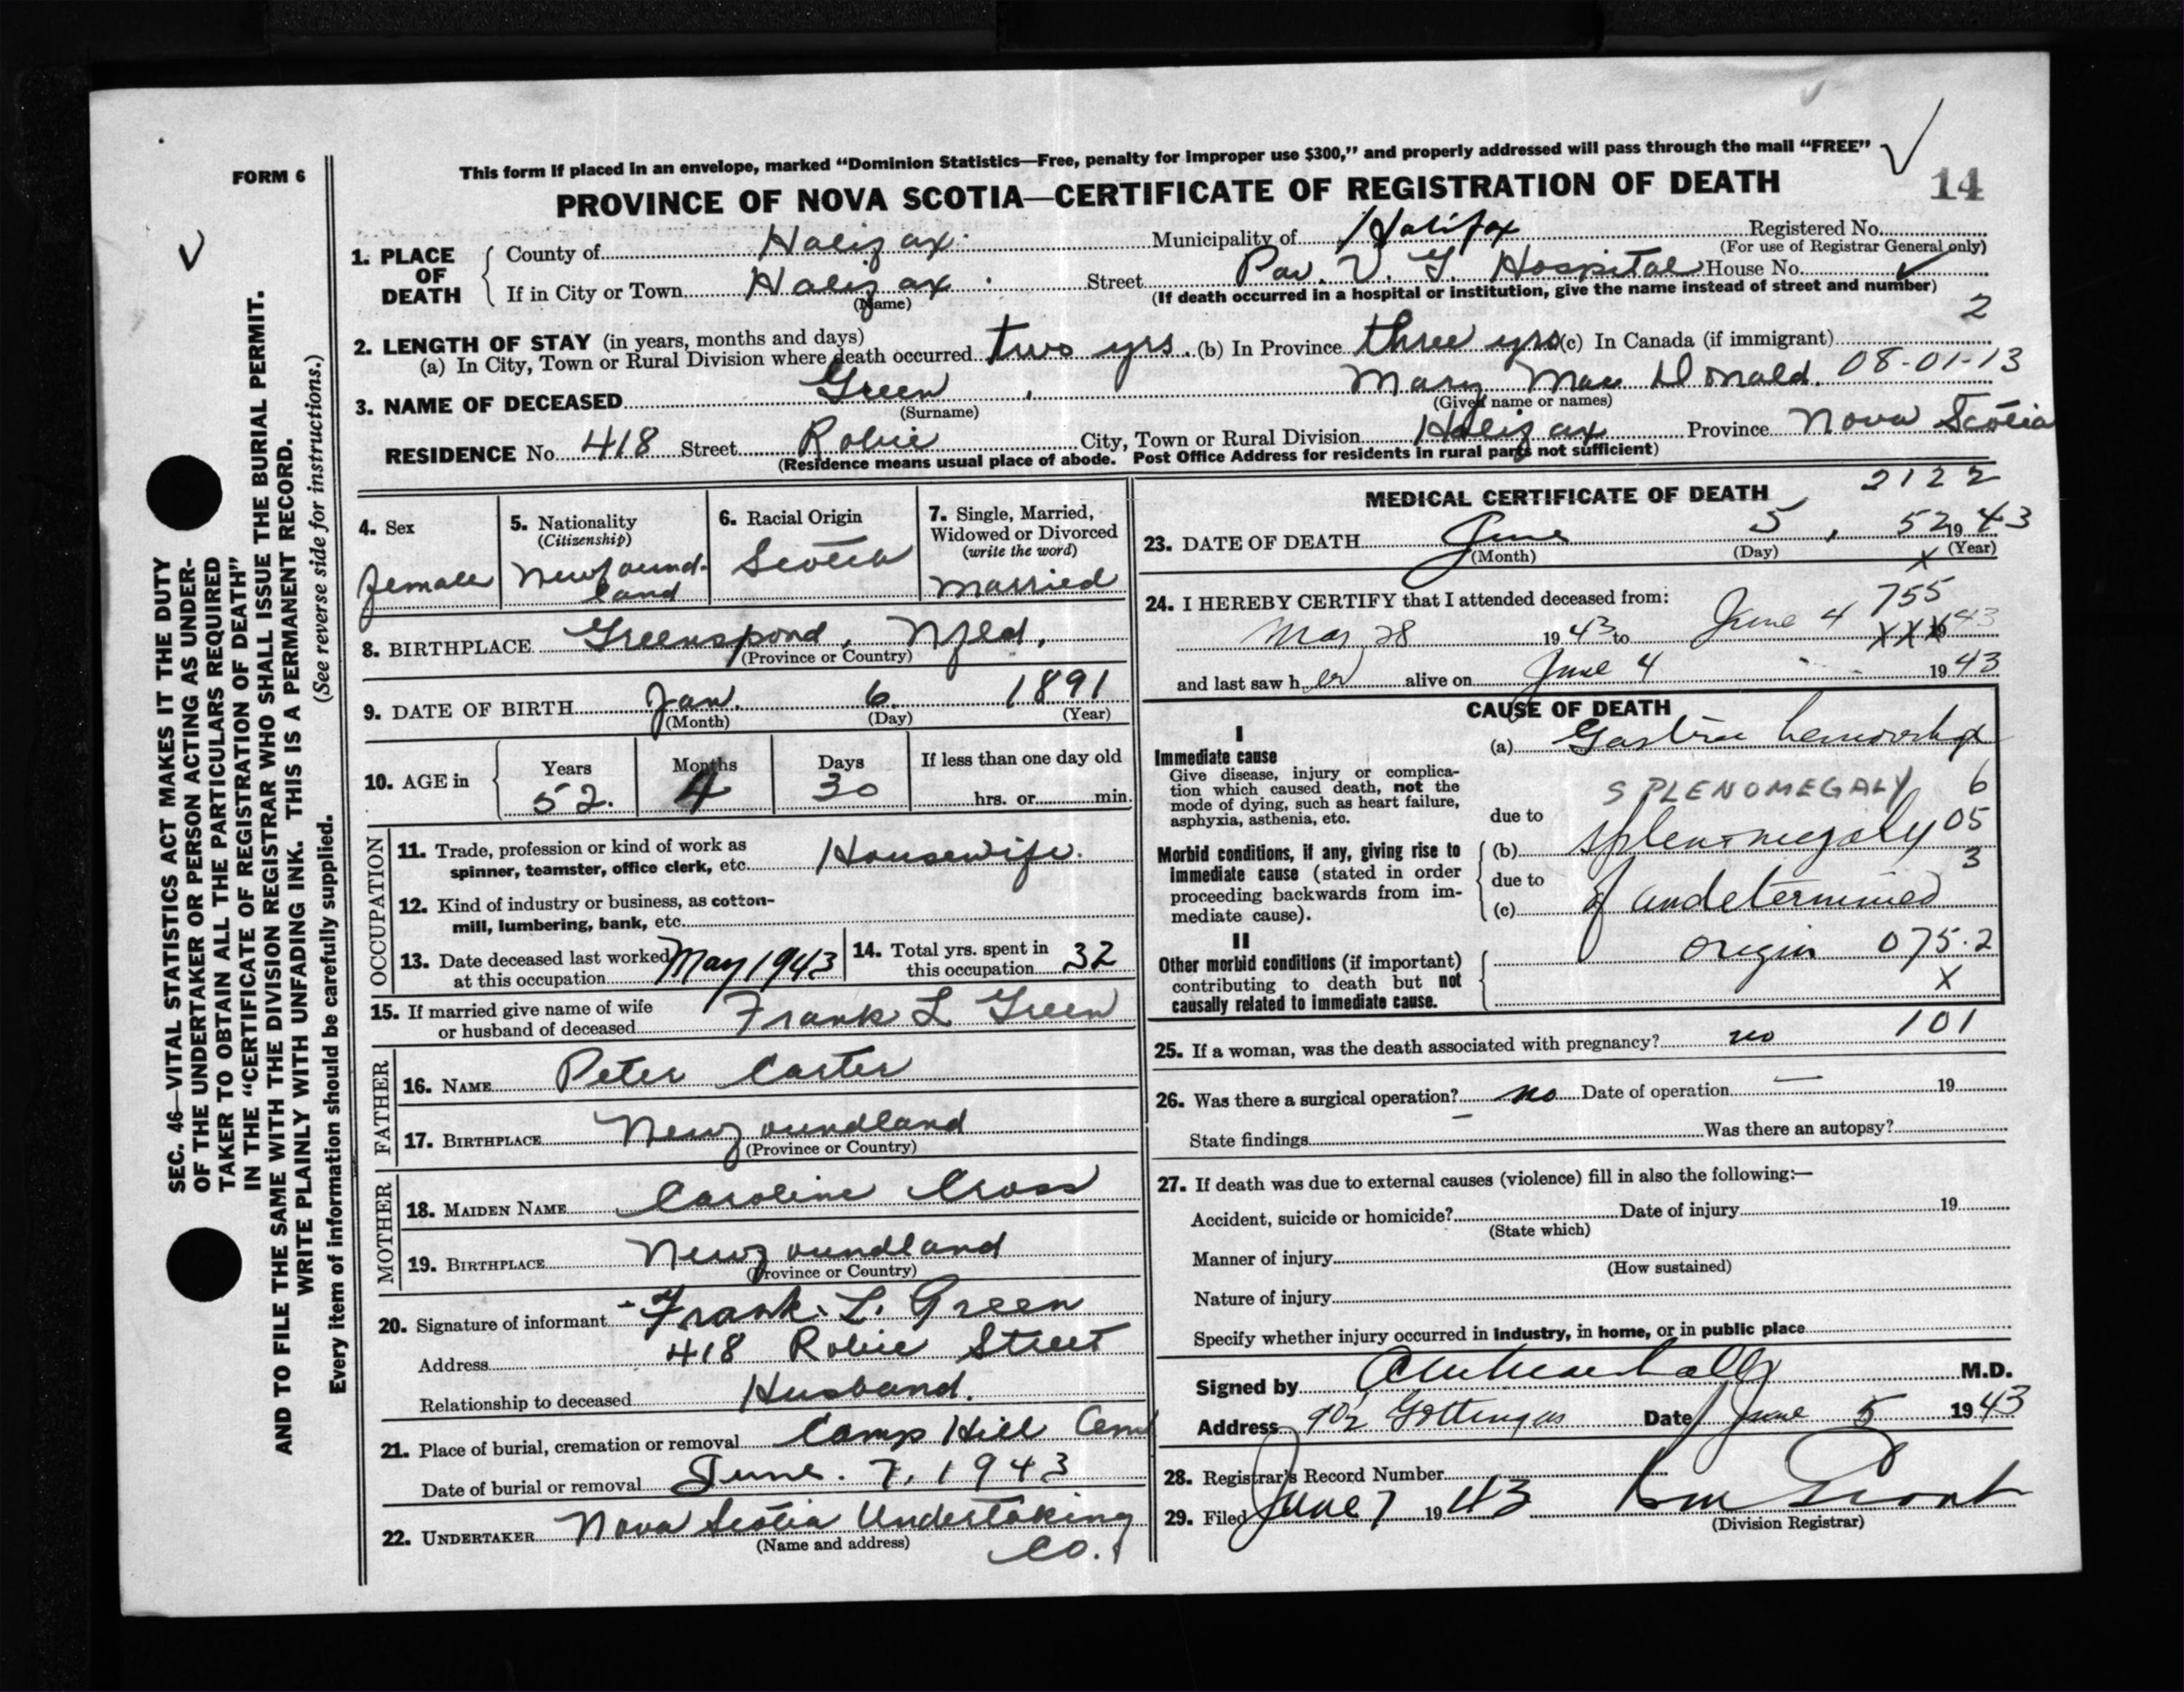 FORM 6
This form if placed in an envelope, marked “Dominion Statistics—Free, penalty for improper use $300,” and properly addressed will pass through the mail “FREE”
PROVINCE OF NOVA SCOTIA—CERTIFICATE OF REGISTRATION OF DEATH 14
1. PLACE OF DEATH
County of Halifax Municipality of Halifax Registered No.
(For use of Registrar General only)
If in City or Town Halifax Street Pav. V. G. Hospital House No.
(Name) (If death occurred in a hospital or institution, give the name instead of street and number)
2
2. LENGTH OF STAY (in years, months and days)
(a) In City, Town or Rural Division where death occurred two yrs. (b) In Province three yrs (c) In Canada (if immigrant)
08-01-13
3. NAME OF DECEASED Green, Mary Mac Donald.
(Surname) (Given name or names)
RESIDENCE No. 418 Street Robie City, Town or Rural Division Halifax Province Nova Scotia
(Residence means usual place of abode. Post Office Address for residents in rural parts not sufficient)
4. Sex
female
5. Nationality
(Citizenship)
Newfound-
land
6. Racial Origin
Scotch
7. Single, Married,
Widowed or Divorced
(write the word)
Married
8. BIRTHPLACE Greenspond, Nfld,
(Province or Country)
9. DATE OF BIRTH Jan. 6. 1891
(Month) (Day) (Year)
10. AGE in
Years Months Days If less than one day old
52. 4 30 hrs. or min.
OCCUPATION
11. Trade, profession or kind of work as
spinner, teamster, office clerk, etc. Housewife.
12. Kind of industry or business, as cotton-
mill, lumbering, bank, etc.
13. Date deceased last worked
at this occupation May 1943
14. Total yrs. spent in
this occupation 32
15. If married give name of wife
or husband of deceased Frank L Green
FATHER
16. NAME Peter Carter
17. BIRTHPLACE Newfoundland
(Province or Country)
MOTHER
18. MAIDEN NAME Caroline Cross
19. BIRTHPLACE Newfoundland
(Province or Country)
20. Signature of informant Frank. L. Green
Address 418 Robie Street
Relationship to deceased Husband.
21. Place of burial, cremation or removal Camp Hill Cem
Date of burial or removal June. 7, 1943
22. UNDERTAKER Nova Scotia Undertaking
(Name and address) Co.
2122
MEDICAL CERTIFICATE OF DEATH
23. DATE OF DEATH June 5, 52 1943
(Month) (Day) (Year)
X
24. I HEREBY CERTIFY that I attended deceased from:
755
Mar 28 1943 to June 4 XXX 1943
and last saw her alive on June 4 1943
CAUSE OF DEATH
I
Immediate cause
Give disease, injury or complica-
tion which caused death, not the
mode of dying, such as heart failure,
asphyxia, asthenia, etc.
(a) Gastric hemorrhage
SPLENOMEGALY 6
due to
Morbid conditions, if any, giving rise to
immediate cause (stated in order
proceeding backwards from im-
mediate cause).
(b) splenomegaly 05
due to 3
(c) of undetermined
II
Other morbid conditions (if important)
contributing to death but not
causally related to immediate cause.
origin 075.2
X
101
25. If a woman, was the death associated with pregnancy? no
26. Was there a surgical operation? no Date of operation — 19
State findings Was there an autopsy?
27. If death was due to external causes (violence) fill in also the following:—
Accident, suicide or homicide? Date of injury 19
(State which)
Manner of injury
(How sustained)
Nature of injury
Specify whether injury occurred in industry, in home, or in public place
Signed by M.D.
Address Gottingen Date June 5 1943
28. Registrar's Record Number
29. Filed June 7 1943
(Division Registrar)
SEC. 46—VITAL STATISTICS ACT MAKES IT THE DUTY
OF THE UNDERTAKER OR PERSON ACTING AS UNDER-
TAKER TO OBTAIN ALL THE PARTICULARS REQUIRED
IN THE “CERTIFICATE OF REGISTRATION OF DEATH”
AND TO FILE THE SAME WITH THE DIVISION REGISTRAR WHO SHALL ISSUE THE BURIAL PERMIT.
WRITE PLAINLY WITH UNFADING INK. THIS IS A PERMANENT RECORD.
Every item of information should be carefully supplied. (See reverse side for instructions.)